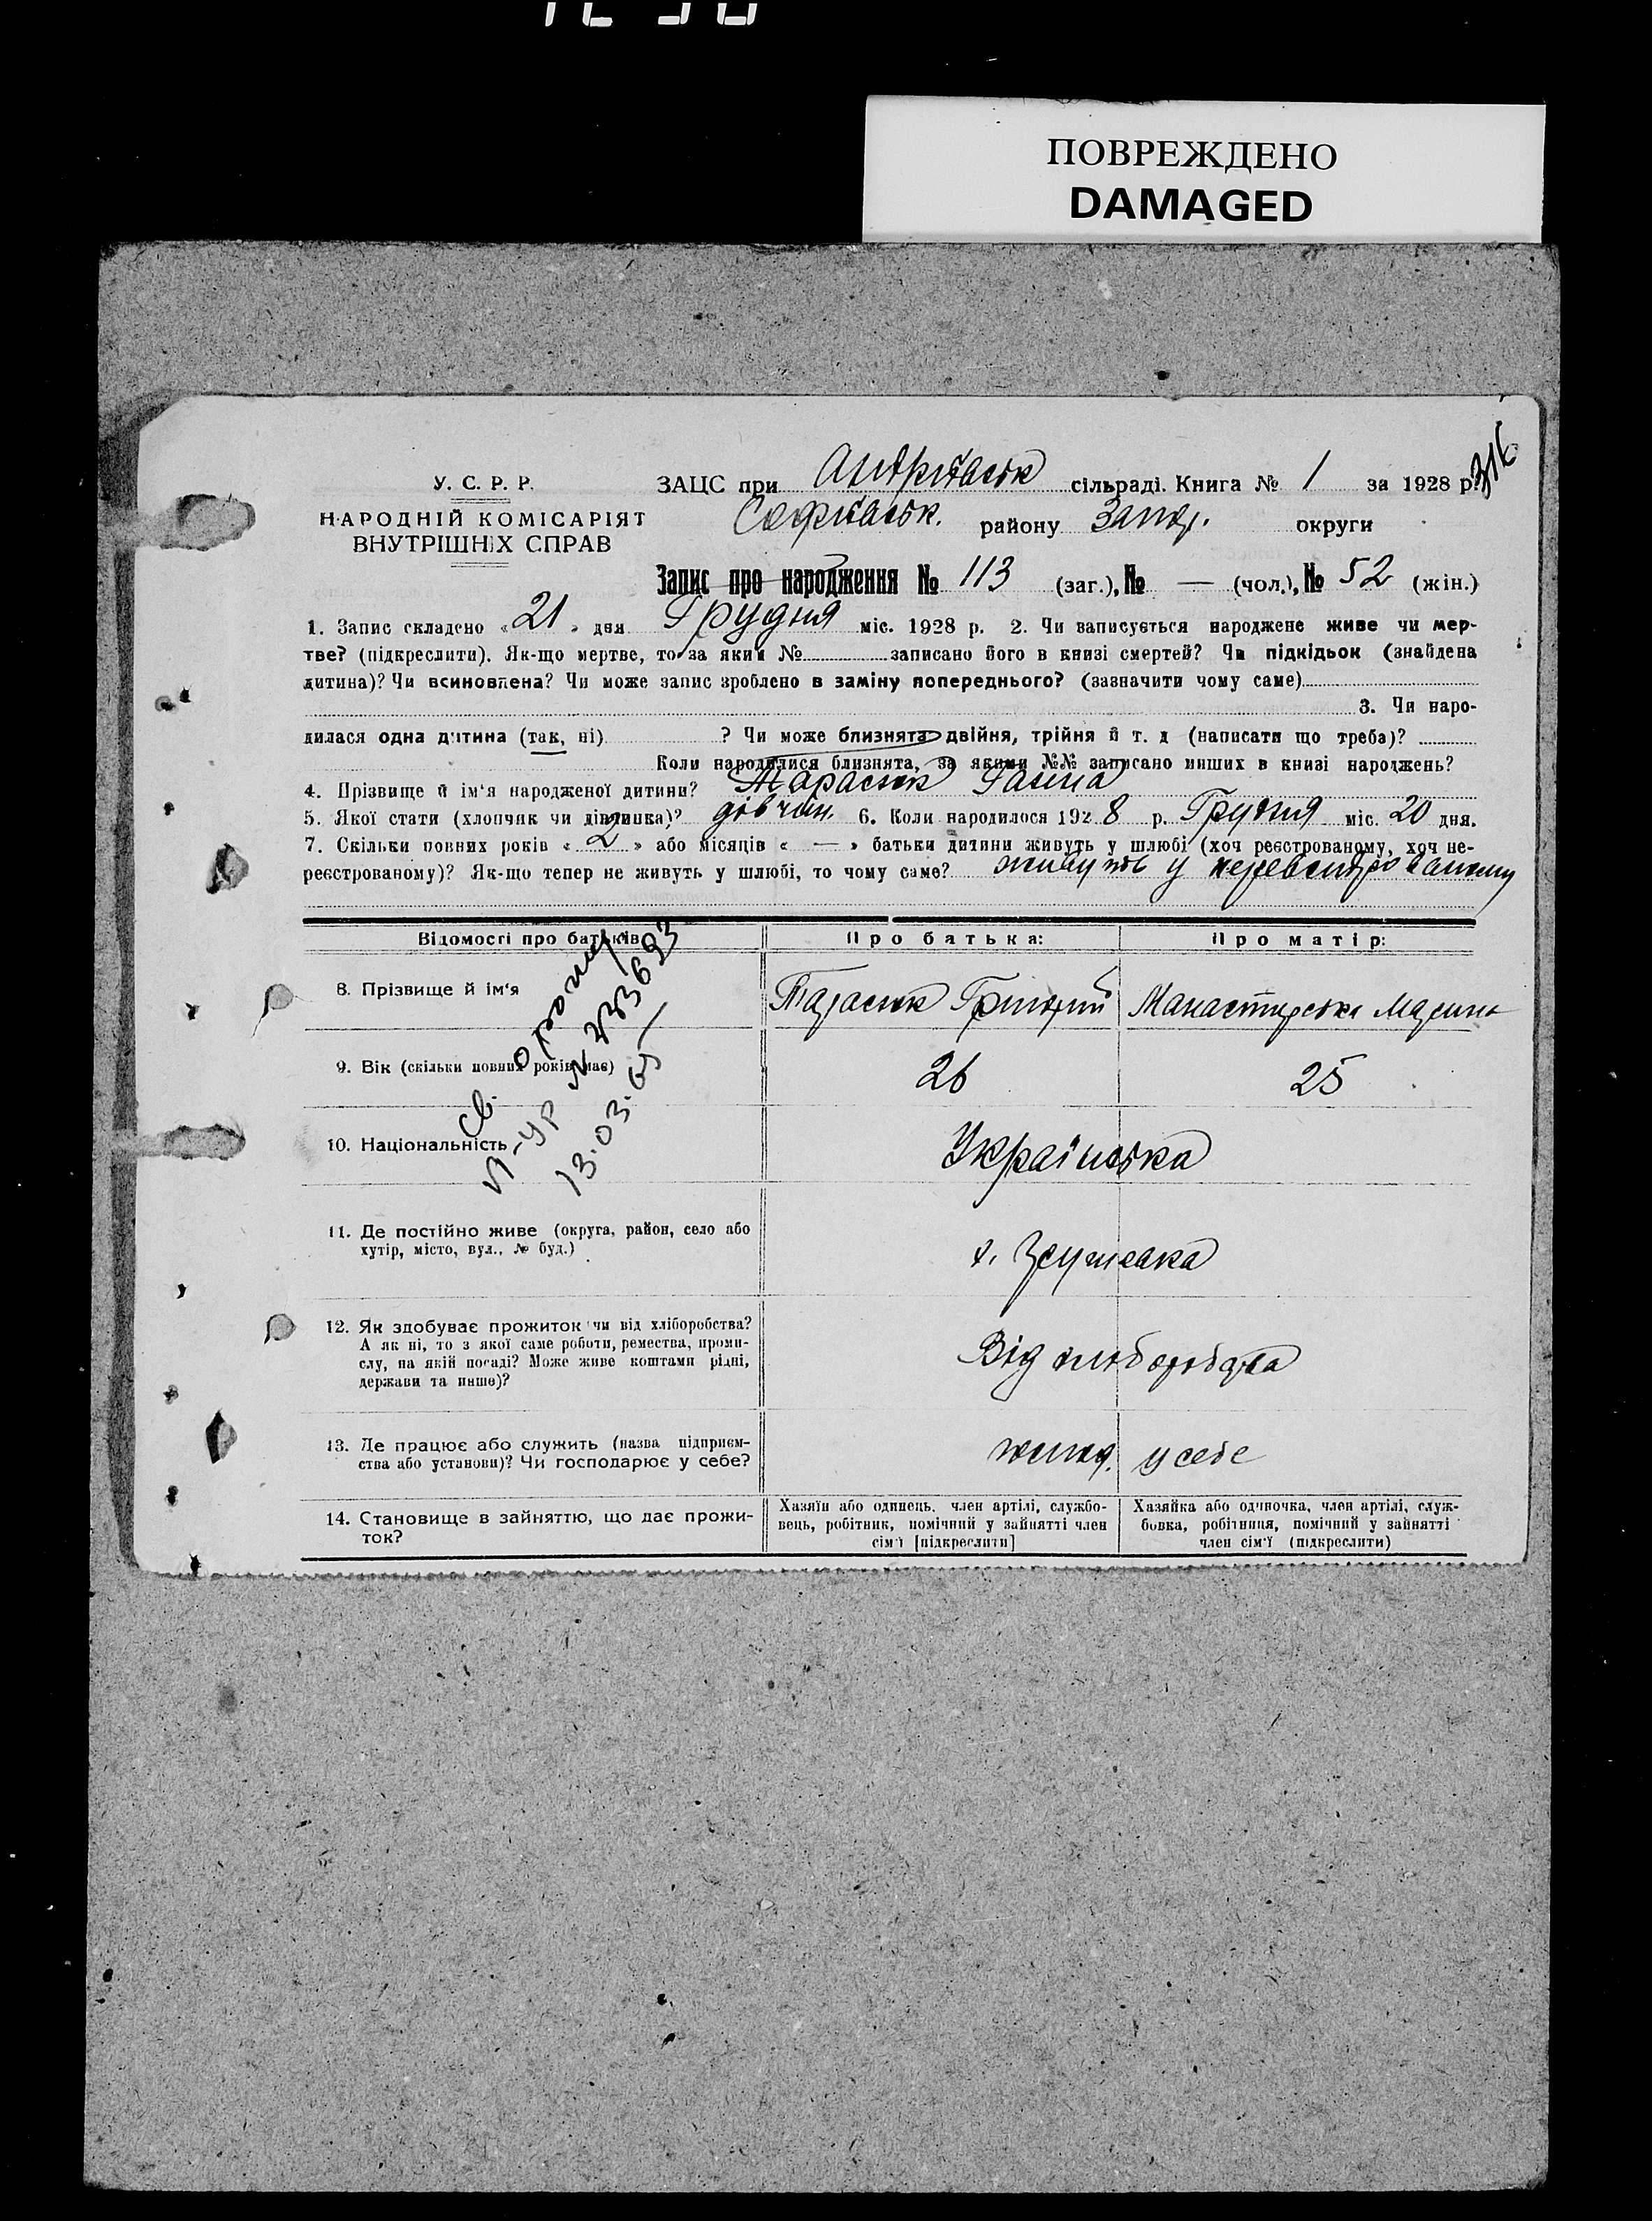 ПОВРЕЖДЕНО
DAMAGED
У. С. Р. Р.
НАРОДНІЙ КОМІСАРІЯТ
ВНУТРІШНІХ СПРАВ
ЗАЦС при Андріївськ сільраді. Книга № 1 за 1928 р.
Софіївськ. району Запор. округи
Запис про народження № 113 (заг.), № — (чол.), № 52 (жін.)
1. Запис складено «21» дня Грудня міс. 1928 р. 2. Чи записується народжене живе чи мер-
тве? (підкреслити). Як-що мертве, то за яким № записано його в книзі смертей? Чи підкідьок (знайдена
дитина)? Чи всиновлена? Чи може запис зроблено в заміну попереднього? (зазначити чому саме)
3. Чи наро-
дилася одна дитина (так, ні) ? Чи може близнята двійня, трійня й т. д (написати що треба)?
Коли народилися близнята, за якими №№ записано инших в книзі народжень?
4. Прізвище й ім'я народженої дитини? Тарасюк Ганна
5. Якої стати (хлопчик чи дівчинка)? дівчин. 6. Коли народилося 1928 р. Грудня міс. 20 дня.
7. Скільки повних років «2» або місяців «—» батьки дитини живуть у шлюбі (хоч реєстрованому, хоч не-
реєстрованому)? Як-що тепер не живуть у шлюбі, то чому саме? живуть у
Відомості про батьків Про батька: Про матір:
8. Прізвище й ім'я Тарасюк Григорий Манастирська
9. Вік (скільки повних років має) 26 25
10. Національність Українська
11. Де постійно живе (округа, район, село або
хутір, місто, вул., № буд.)
12. Як здобуває прожиток чи від хліборобства?
А як ні, то з якої саме роботи, ремества, проми-
слу, на якій посаді? Може живе коштами рідні,
держави та инше)?
Від хліборобства
13. Де працює або служить (назва підприєм-
ства або установи)? Чи господарює у себе?
у себе
14. Становище в зайняттю, що дає прожи-
ток?
Хазяїн або одинець, член артілі, службо-
вець, робітник, помічний у зайнятті член
сім'ї [підкреслити]
Хазяйка або одиночка, член артілі, служ-
бовка, робітниця, помічний у зайнятті
член сім'ї (підкреслити)
св. о рожд
13.03.65